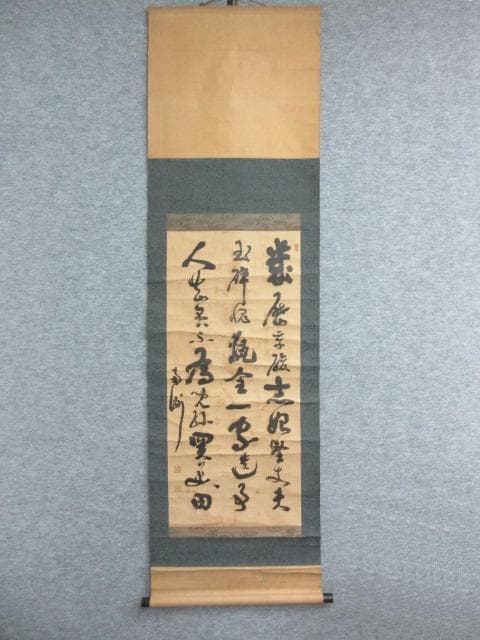 幾歴辛酸志始堅丈夫
玉砕愧甎全一家遺事
人知否不為児孫買美田
南洲